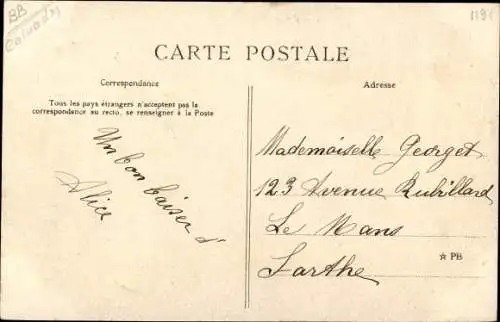 BB
Calvados
1191
CARTE POSTALE
Correspondance
Tous les pays étrangers n'acceptent pas la
correspondance au recto, se renseigner à la Poste
Un bon baiser d'
Alice
Adresse
Mademoiselle Georget
123 Avenue Rubillard
Le Mans
☆ PB
Sarthe